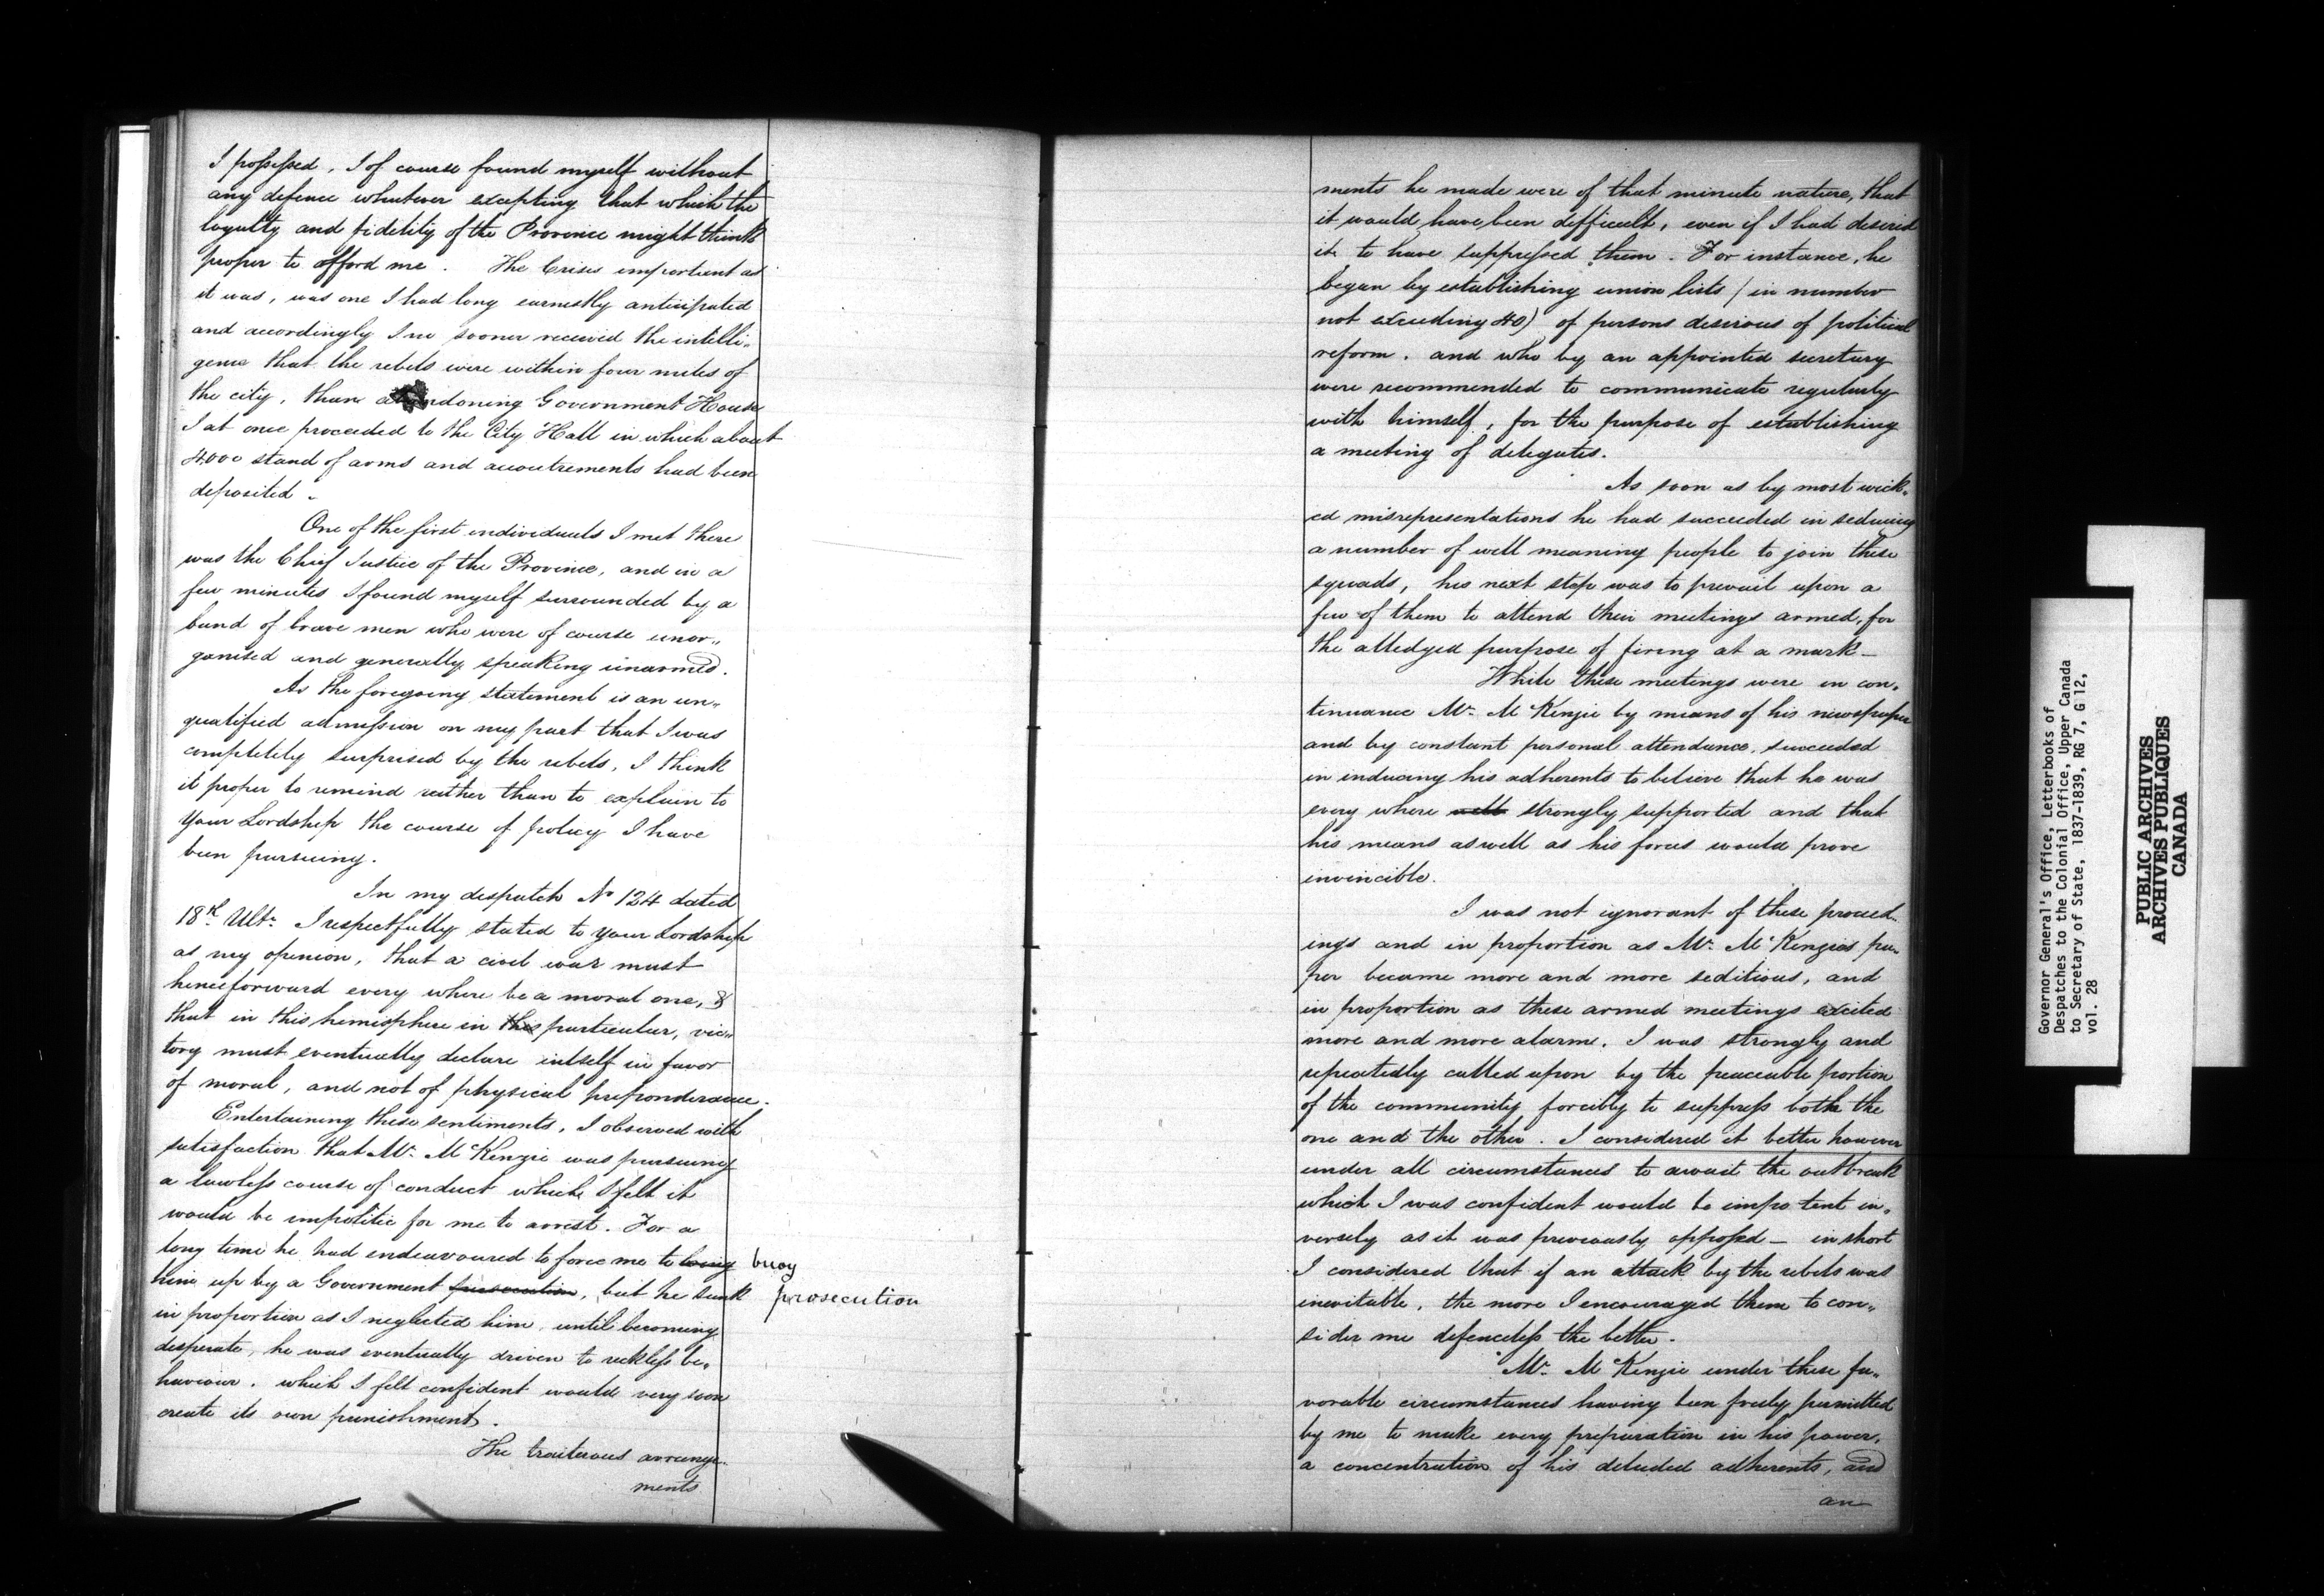 I possessed, I of course found myself without
any defence whatever excepting that which the
loyalty and fidelity of the Province might think
proper to afford me. The Crisis important as
it was, was one I had long earnestly anticipated
and accordingly I no sooner received the intelli-
gence that the rebels were within four miles of
the city, than abandoning Government House
I at once proceeded to the City Hall in which about
4000 stand of arms and accoutrements had been
deposited.
One of the first individuals I met there
was the Chief Justice of the Province, and in a
few minutes I found myself surrounded by a
band of brave men who were of course unor-
ganised and generally speaking unarmed.
As the foregoing statement is an un-
qualified admission on my part that I was
completely surprised by the rebels, I think
it proper to remind rather than to explain to
Your Lordship the course of policy I have
been pursuing.
In my despatch No 124 dated
18th Ulto. I respectfully stated to your Lordship
as my opinion, that a civil war must
henceforward every where be a moral one, &
that in this hemisphere in this particular, vic-
tory must eventually declare intself in favor
of moral, and not of physical preponderance.
Entertaining these sentiments, I observed with
satisfaction that Mr. McKenzie was pursuing
a lawless course of conduct which I felt it
would be impolitic for me to arrest. For a
long time he had endeavoured to force me to buoy
him up by a Government prosecution, but he sunk
in proportion as I neglected him, until becoming
desperate, he was eventually driven to reckless be-
haviour, which I felt confident would very soon
create its own punishment.
The traiterous arrange-
ments
ments he made were of that minute nature, that
it would have been difficult, even if I had desired
it, to have suppressed them. For instance, he
began by establishing union lists (in number
not exceeding 40) of persons desirous of political
reform, and who by an appointed secretary
were recommended to communicate regularly
with himself, for the purpose of establishing
a meeting of delegates.
As soon as by most wick-
ed misrepresentations he had succeeded in seducing
a number of well meaning people to join these
squads, his next step was to prevail upon a
few of them to attend their meetings armed, for
the alledged purpose of firing at a mark—
While these meetings were in con-
tinuance Mr. McKenzie by means of his newspaper
and by constant personal attendance, succeeded
in inducing his adherents to believe that he was
every where well strongly supported and that
his means as well as his forces would prove
invincible.
I was not ignorant of these proceed-
ings and in proportion as Mr. McKenzies pa-
per became more and more seditious, and
in proportion as these armed meetings excited
more and more alarm, I was strongly and
repeatedly called upon by the peaceable portion
of the community forcibly to suppress both the
one and the other. I considered it better however
under all circumstances to await the outbreak
which I was confident would be impotent in-
versely as it was previously opposed— in short
I considered that if an attack by the rebels was
inevitable, the more I encouraged them to con-
sider me defenceless the better.
Mr. McKenzie under these fa-
vorable circumstances having been freely permitted
by me to make every preparation in his power,
a concentration of his deluded adherents, and
an
Governor General's Office, Letterbooks of
Despatches to the Colonial Office, Upper Canada
to Secretary of State, 1837-1839, RG 7, G 12,
vol. 28
PUBLIC ARCHIVES
ARCHIVES PUBLIQUES
CANADA